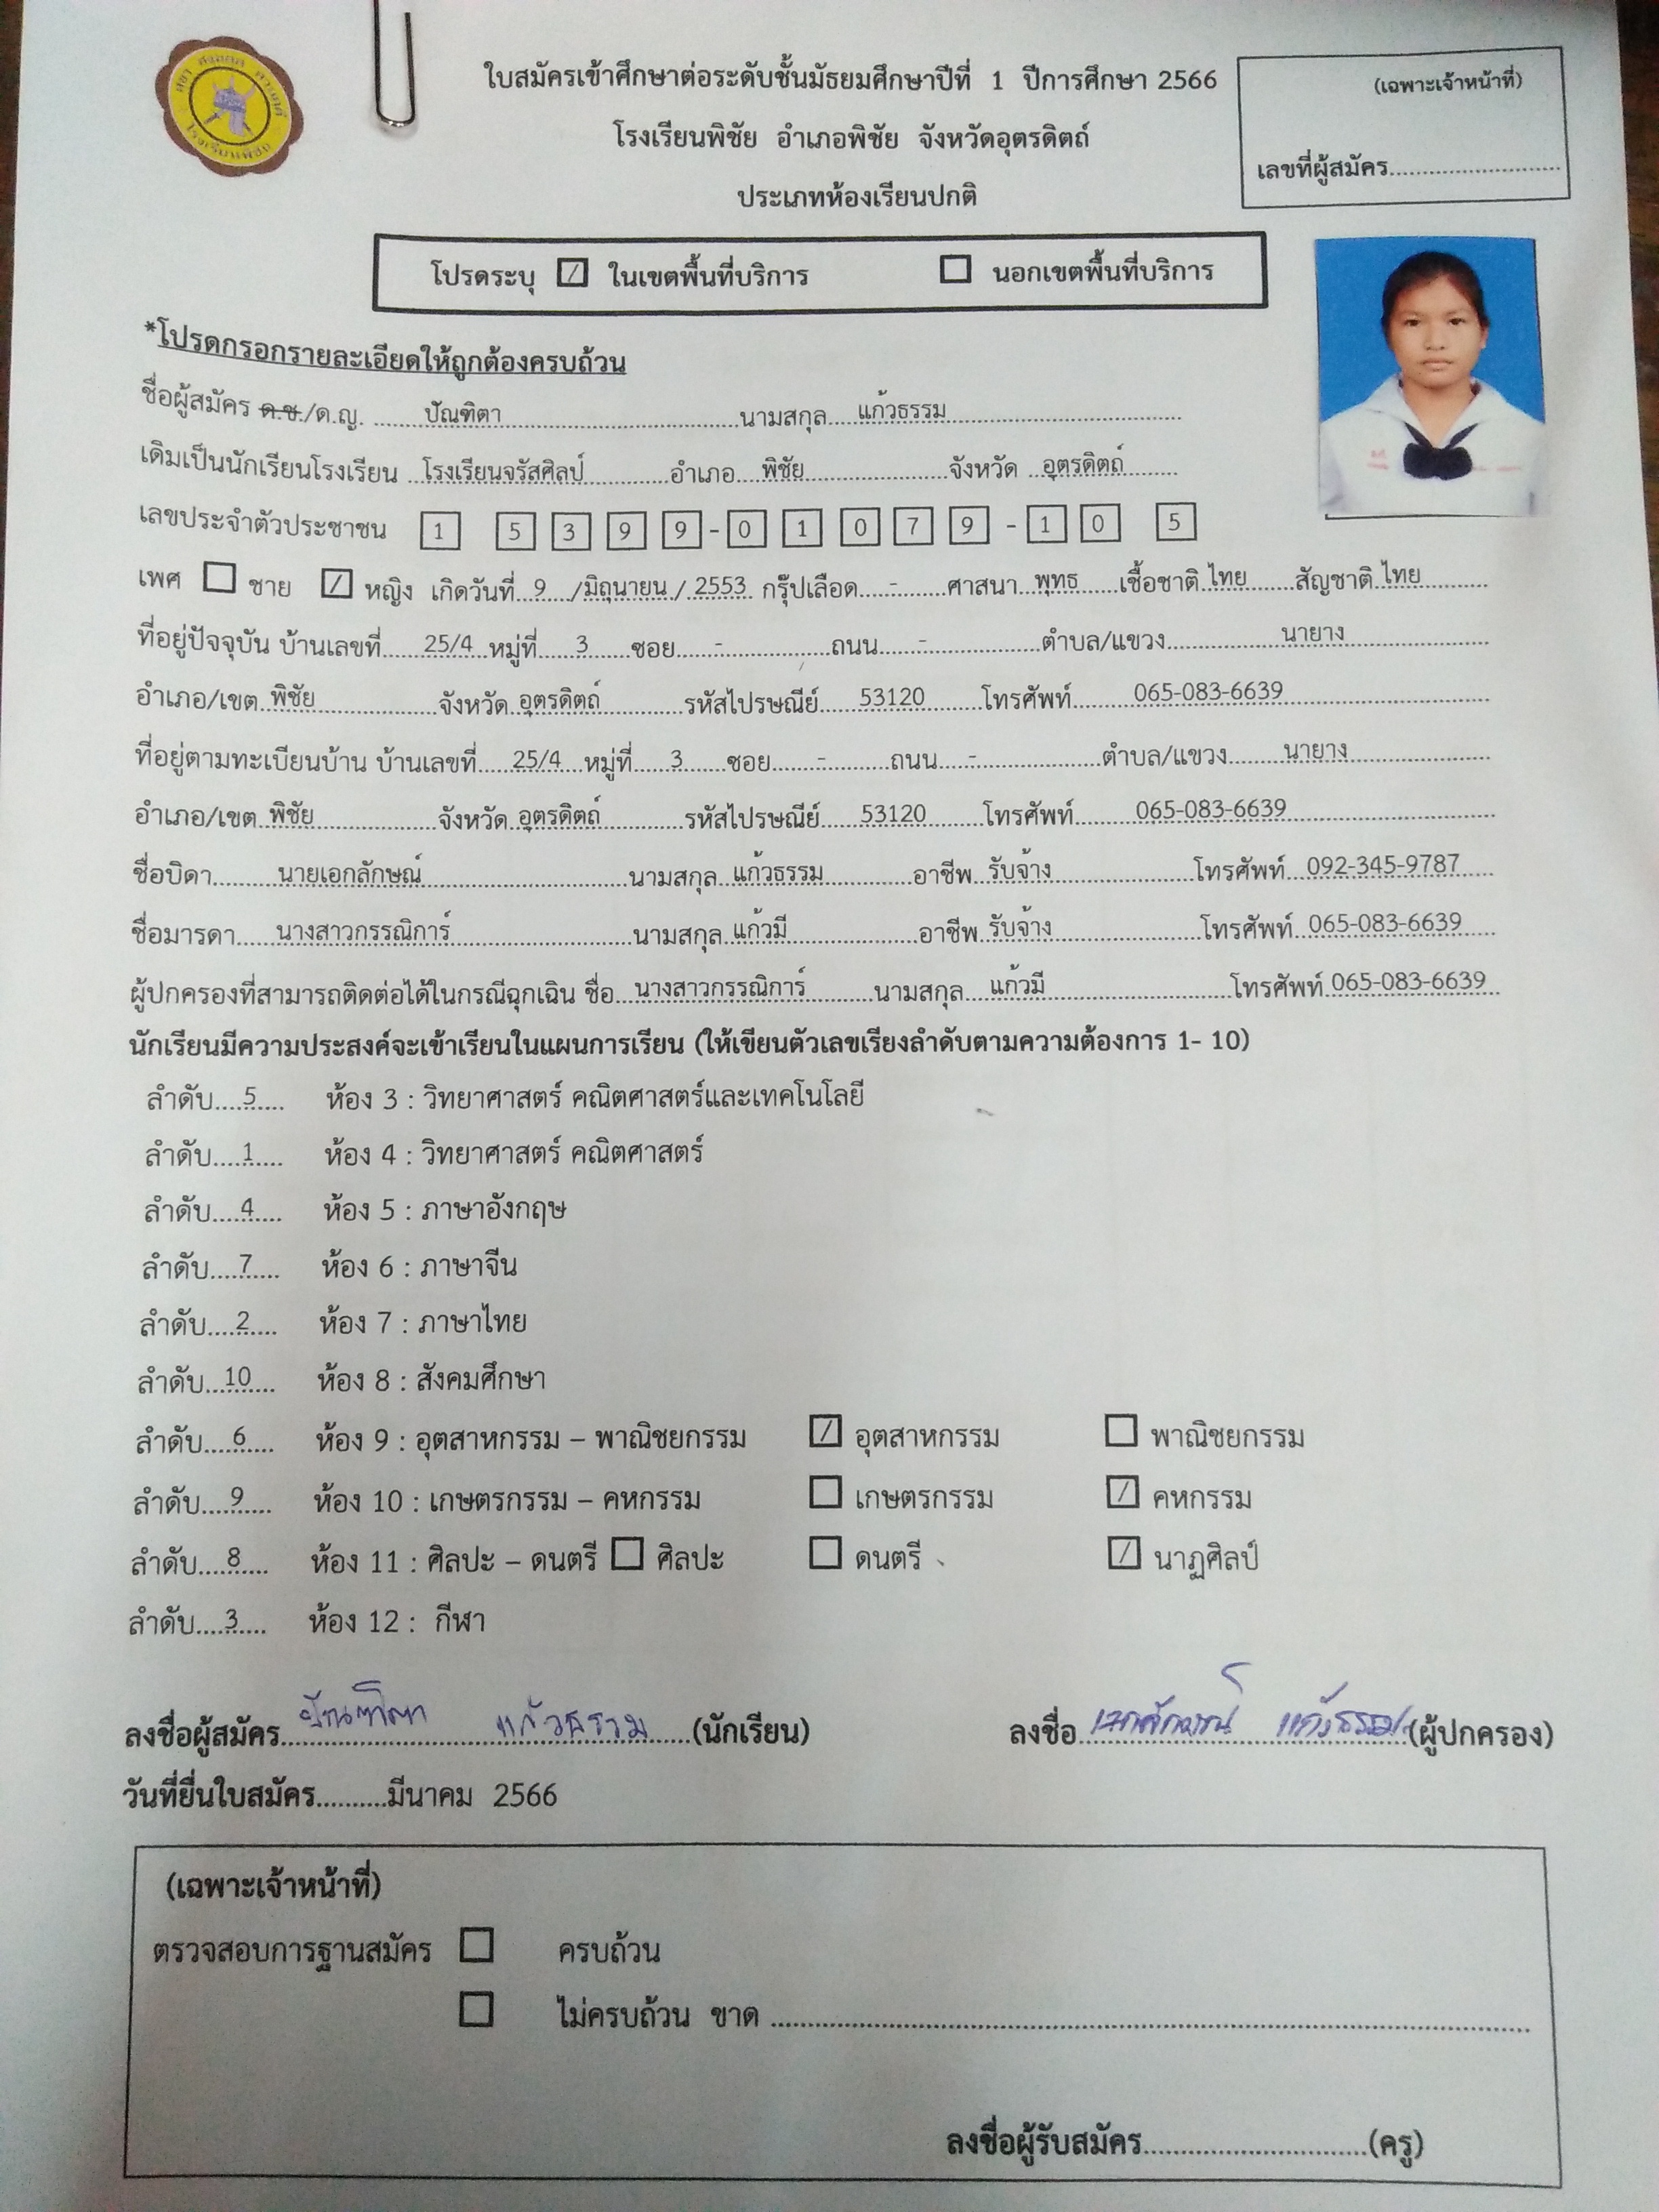 ใบสมัครเข้าศึกษาต่อระดับชั้นมัธยมศึกษาปีที่ 1 ปีการศึกษา 2566
(เฉพาะเจ้าหน้าที่)
โรงเรียนพิชัย อำเภอพิชัย จังหวัดอุตรดิตถ์
เลขที่ผู้สมัคร..............................
ประเภทห้องเรียนปกติ
โรงเรียนพิชัย
โปรดระบุ ☑ ในเขตพื้นที่บริการ ☐ นอกเขตพื้นที่บริการ
*โปรดกรอกรายละเอียดให้ถูกต้องครบถ้วน
ชื่อผู้สมัคร ด.ช./ด.ญ. ปัณฑิตา นามสกุล แก้วธรรม
เดิมเป็นนักเรียนโรงเรียน โรงเรียนจรัสศิลป์ อำเภอ พิชัย จังหวัด อุตรดิตถ์
เลขประจำตัวประชาชน 1 5 3 9 9 - 0 1 0 7 9 - 1 0 5
เพศ ☐ ชาย ☑ หญิง เกิดวันที่ 9 / มิถุนายน / 2553 กรุ๊ปเลือด - ศาสนา พุทธ เชื้อชาติ ไทย สัญชาติ ไทย
ที่อยู่ปัจจุบัน บ้านเลขที่ 25/4 หมู่ที่ 3 ซอย - ถนน - ตำบล/แขวง นายาง
อำเภอ/เขต พิชัย จังหวัด อุตรดิตถ์ รหัสไปรษณีย์ 53120 โทรศัพท์ 065-083-6639
ที่อยู่ตามทะเบียนบ้าน บ้านเลขที่ 25/4 หมู่ที่ 3 ซอย - ถนน - ตำบล/แขวง นายาง
อำเภอ/เขต พิชัย จังหวัด อุตรดิตถ์ รหัสไปรษณีย์ 53120 โทรศัพท์ 065-083-6639
ชื่อบิดา นายเอกลักษณ์ นามสกุล แก้วธรรม อาชีพ รับจ้าง โทรศัพท์ 092-345-9787
ชื่อมารดา นางสาวกรรณิการ์ นามสกุล แก้วมี อาชีพ รับจ้าง โทรศัพท์ 065-083-6639
ผู้ปกครองที่สามารถติดต่อได้ในกรณีฉุกเฉิน ชื่อ นางสาวกรรณิการ์ นามสกุล แก้วมี โทรศัพท์ 065-083-6639
นักเรียนมีความประสงค์จะเข้าเรียนในแผนการเรียน (ให้เขียนตัวเลขเรียงลำดับตามความต้องการ 1- 10)
ลำดับ 5 ห้อง 3 : วิทยาศาสตร์ คณิตศาสตร์และเทคโนโลยี
ลำดับ 1 ห้อง 4 : วิทยาศาสตร์ คณิตศาสตร์
ลำดับ 4 ห้อง 5 : ภาษาอังกฤษ
ลำดับ 7 ห้อง 6 : ภาษาจีน
ลำดับ 2 ห้อง 7 : ภาษาไทย
ลำดับ 10 ห้อง 8 : สังคมศึกษา
ลำดับ 6 ห้อง 9 : อุตสาหกรรม – พาณิชยกรรม ☑ อุตสาหกรรม ☐ พาณิชยกรรม
ลำดับ 9 ห้อง 10 : เกษตรกรรม – คหกรรม ☐ เกษตรกรรม ☑ คหกรรม
ลำดับ 8 ห้อง 11 : ศิลปะ – ดนตรี ☐ ศิลปะ ☐ ดนตรี ☑ นาฏศิลป์
ลำดับ 3 ห้อง 12 : กีฬา
ลงชื่อผู้สมัคร ปัณฑิตา แก้วธรรม (นักเรียน) ลงชื่อ เอกลักษณ์ แก้วธรรม (ผู้ปกครอง)
วันที่ยื่นใบสมัคร..........มีนาคม 2566
(เฉพาะเจ้าหน้าที่)
ตรวจสอบการฐานสมัคร ☐ ครบถ้วน
☐ ไม่ครบถ้วน ขาด ..............................
ลงชื่อผู้รับสมัคร..............................(ครู)